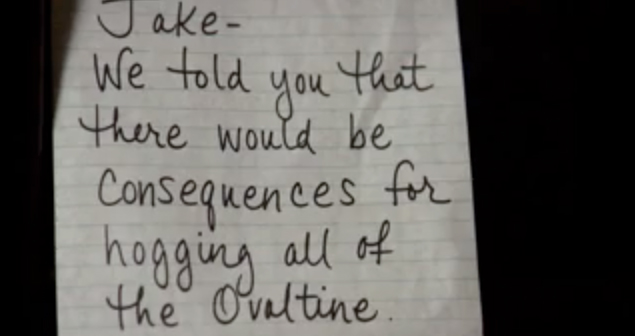 Jake-
We told you that
there would be
Consequences for
hogging all of
the Ovaltine.